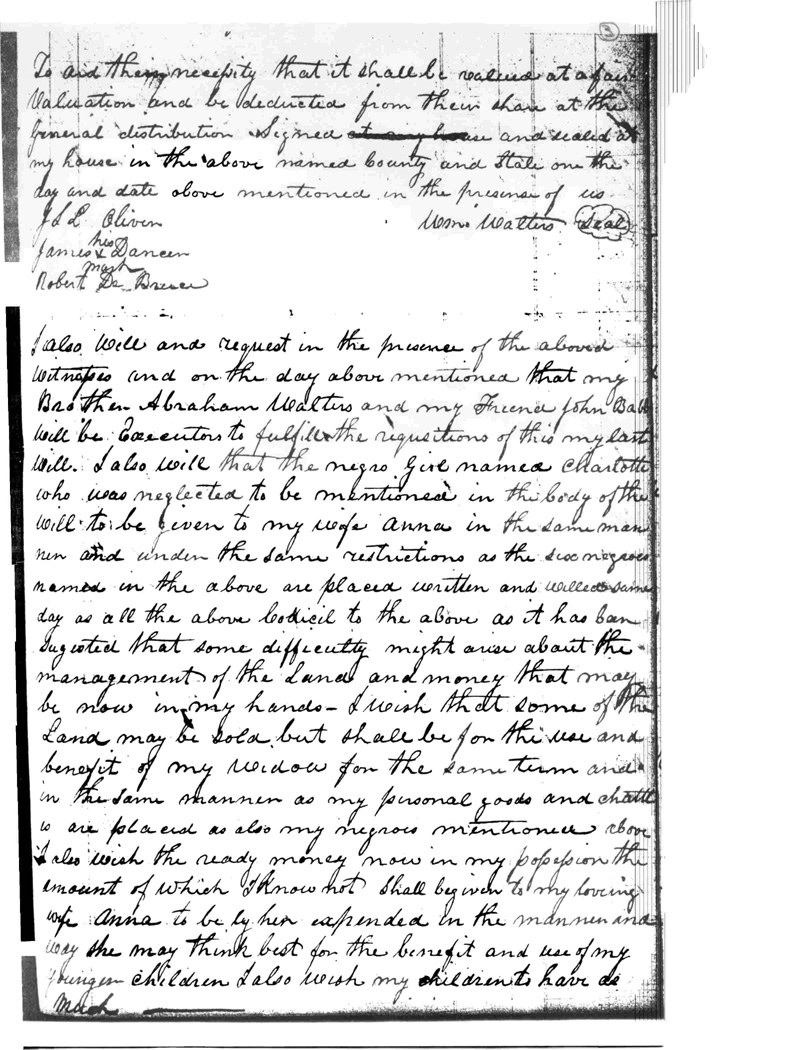 3
To aid them necessity that it shall be valued at a fair
valuation and be deducted from their share at the
General distribution Signed at my house and sealed at
my house in the above named County and State one the
day and date above mentioned in the presense of us
J L L Oliver Wm. Walters Seal
his
James x Dancer
mark
Robert De Bruce
I also Will and request in the presence of the aboved
Witnesses and on the day above mentioned that my
Brother Abraham Walters and my Friend John Babb
will be Executors to fulfill the requsitions of this my last
Will. I also will that the negro Girl named Charlotte
who was neglected to be mentioned in the body of the
Will to be given to my wife Anna in the same man
ner and under the same restrictions as the six negroes
named in the above are placed written and willed same
day as all the above Codicil to the above as it has ban
sugested that some difficulty might arise about the
management of the Land and money that may
be now in my hands - I wish that some of the
Land may be sold but shall be for the use and
benefit of my Widow for the same term and
in the same manner as my personal goods and chattl
is are placed as also my negroes mentioned above
I also wish the ready money now in my possession the
amount of which I know not shall be given to my loveing
wife Anna to be by her expended in the manner and
way she may think best for the benefit and use of my
younger children I also wish my children to have as
Much